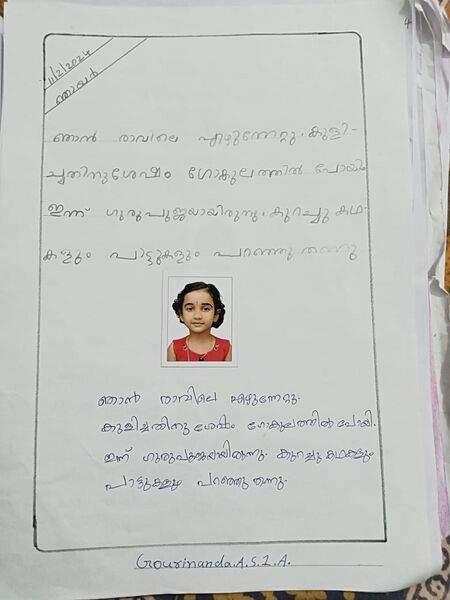 4
11/2/2024
ഞായർ
ഞാൻ രാവിലെ എഴുന്നേറ്റു. കുളി-
ച്ചതിനുശേഷം ഗോകുലത്തിൽ പോയി
ഇന്ന് ഗുരുപൂജയായിരുന്നു. കുറച്ചു കഥ-
കളും പാട്ടുകളും പറഞ്ഞു തന്നു
ഞാൻ രാവിലെ എഴുന്നേറ്റു.
കുളിച്ചതിനു ശേഷം ഗോകുലത്തിൽ പോയി.
ഇന്ന് ഗുരുപൂജയായിരുന്നു. കുറച്ചു കഥകളും
പാട്ടുകളും പറഞ്ഞു തന്നു.
Gourinanda.A.S.1.A.